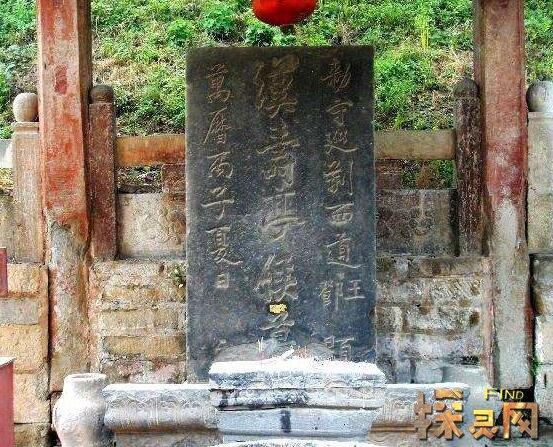 勅守巡荆西道汪鄧題
漢壽亭侯墓
萬曆丙子夏日
FIND
探灵网